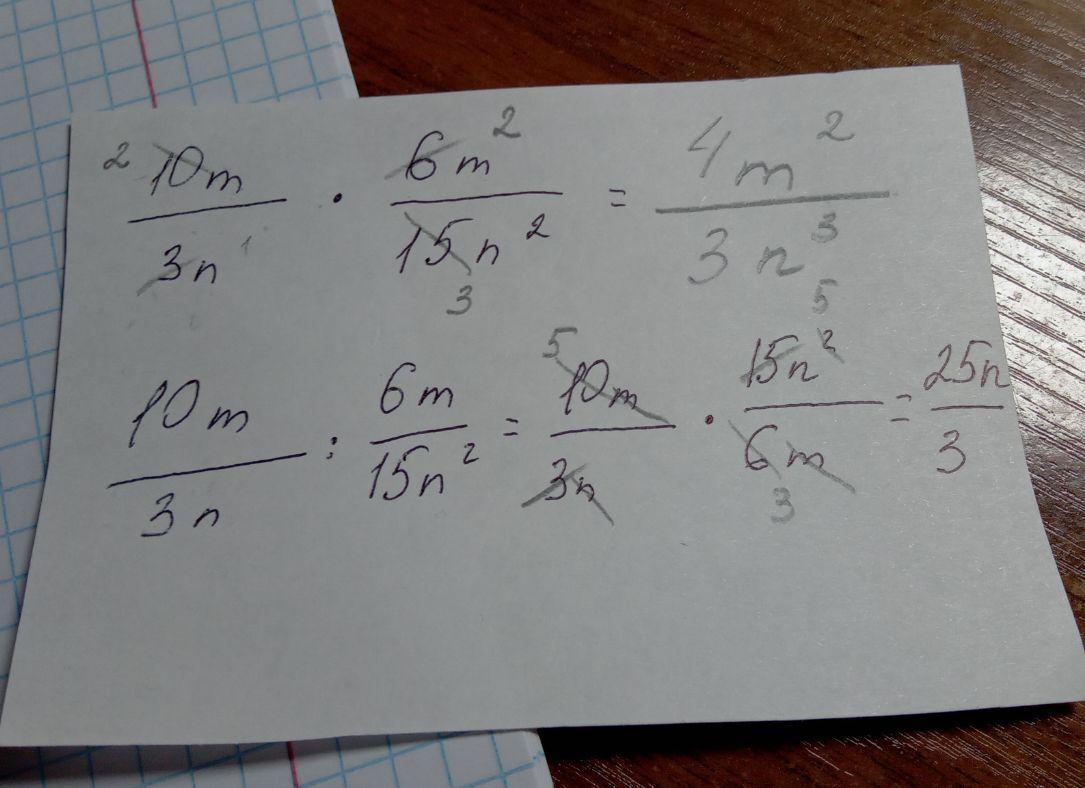 2 10m / 3n ¹ · 6m ² / 15n² 3 = 4m² / 3n³
10m / 3n : 6m / 15n² = 5 10m / 3n · 5 15n² / 6m 3 = 25n / 3